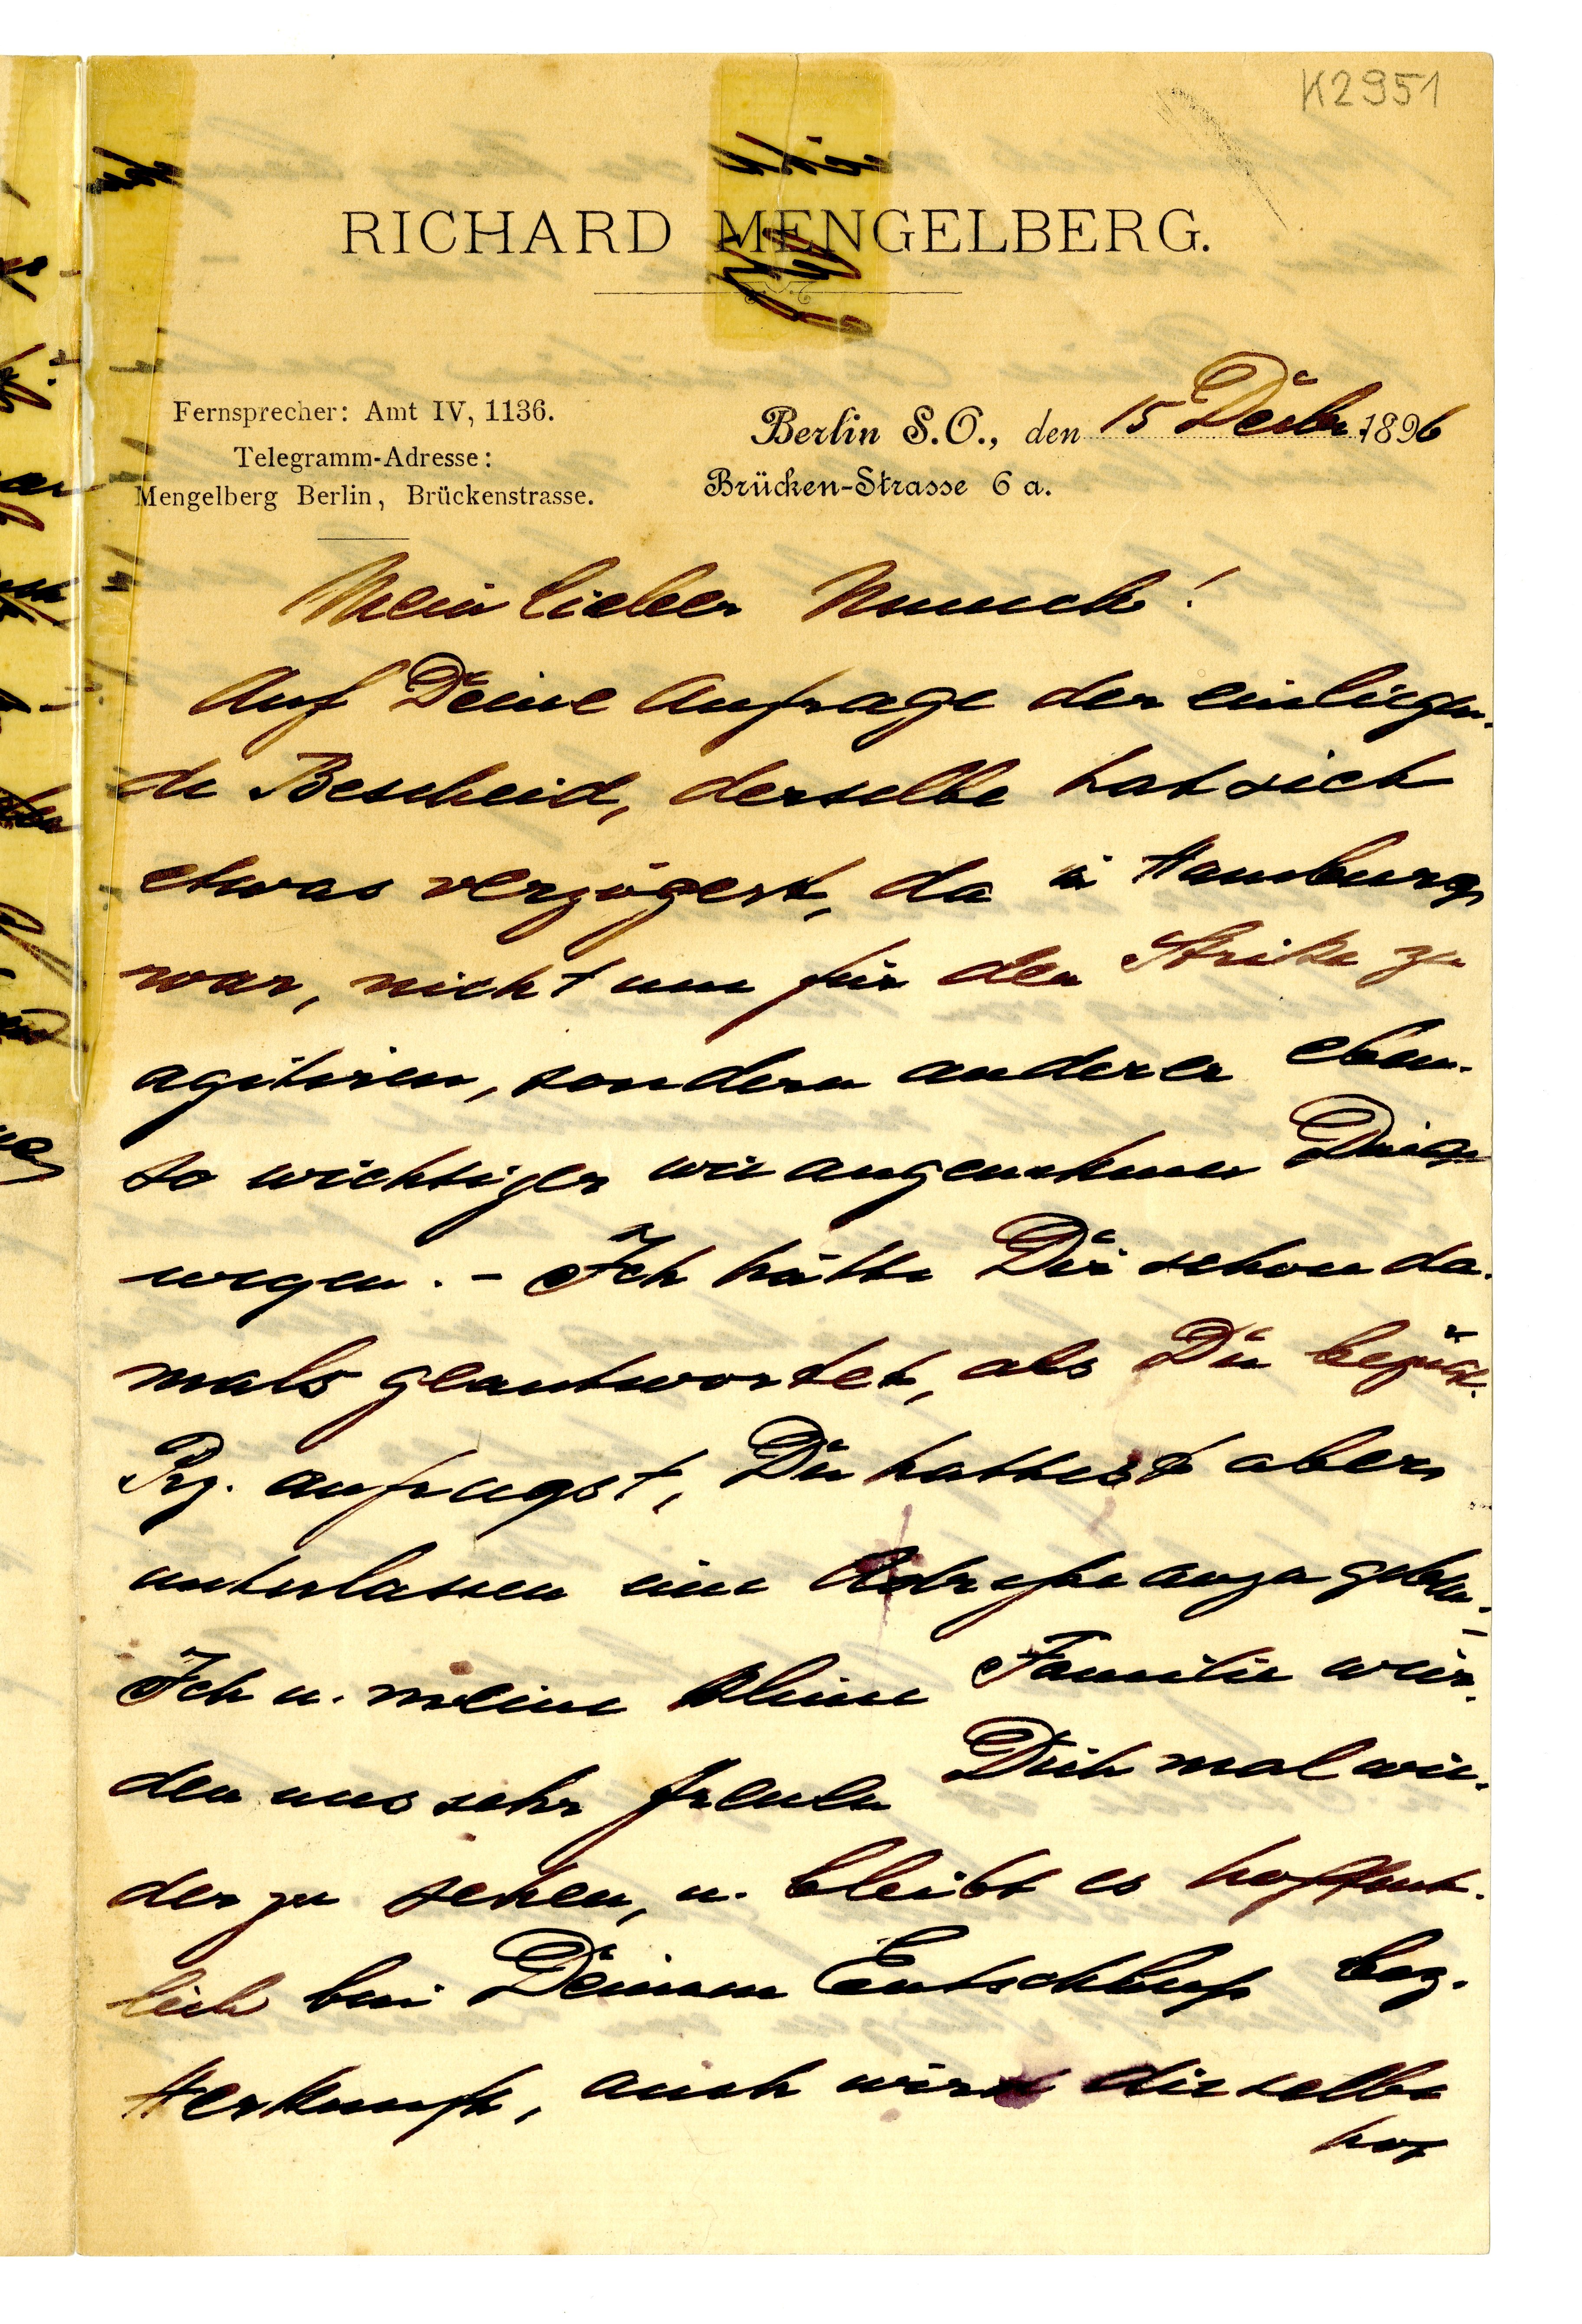 K2951
RICHARD MENGELBERG.
Fernsprecher: Amt IV, 1136.
Telegramm-Adresse:
Mengelberg Berlin, Brückenstrasse.
Berlin S.O., den 15 Decbr. 1896
Brücken-Strasse 6 a.
Mein lieber Munch!
Auf Deine Anfrage den einliegen-
de Bescheid, derselbe hat sich
etwas verzögert, da in Hamburg
war, nicht um für den Strike zu
agitiren, sondern anderer eben-
so wichtiger wie angenehmer Dinge
wegen. – Ich hätte Dir schon da-
mals geantwortet, als Du bezügl.
Prz. anfrugst, Du hattest aber
unterlassen eine Adreße anzugeben. –
Ich u. meine kleine Familie wür-
den uns sehr freuen Dich mal wie-
der zu sehen, u. bleibt es hoffent-
lich bei Deinem Entschluß bez.
Herkunft, auch wird dieselbe